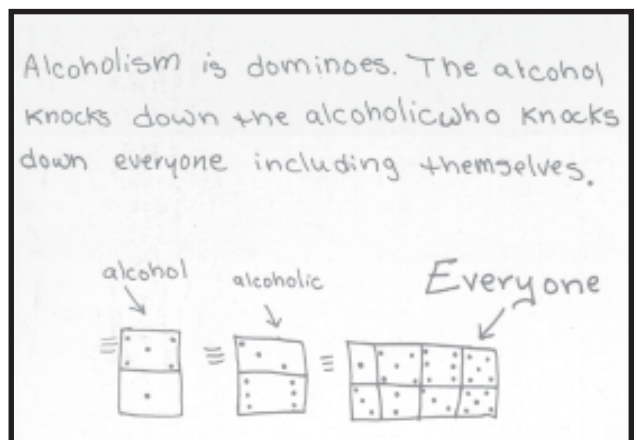 Alcoholism is dominoes. The alcohol
knocks down the alcoholic who knocks
down everyone including themselves.
alcohol
alcoholic
Everyone